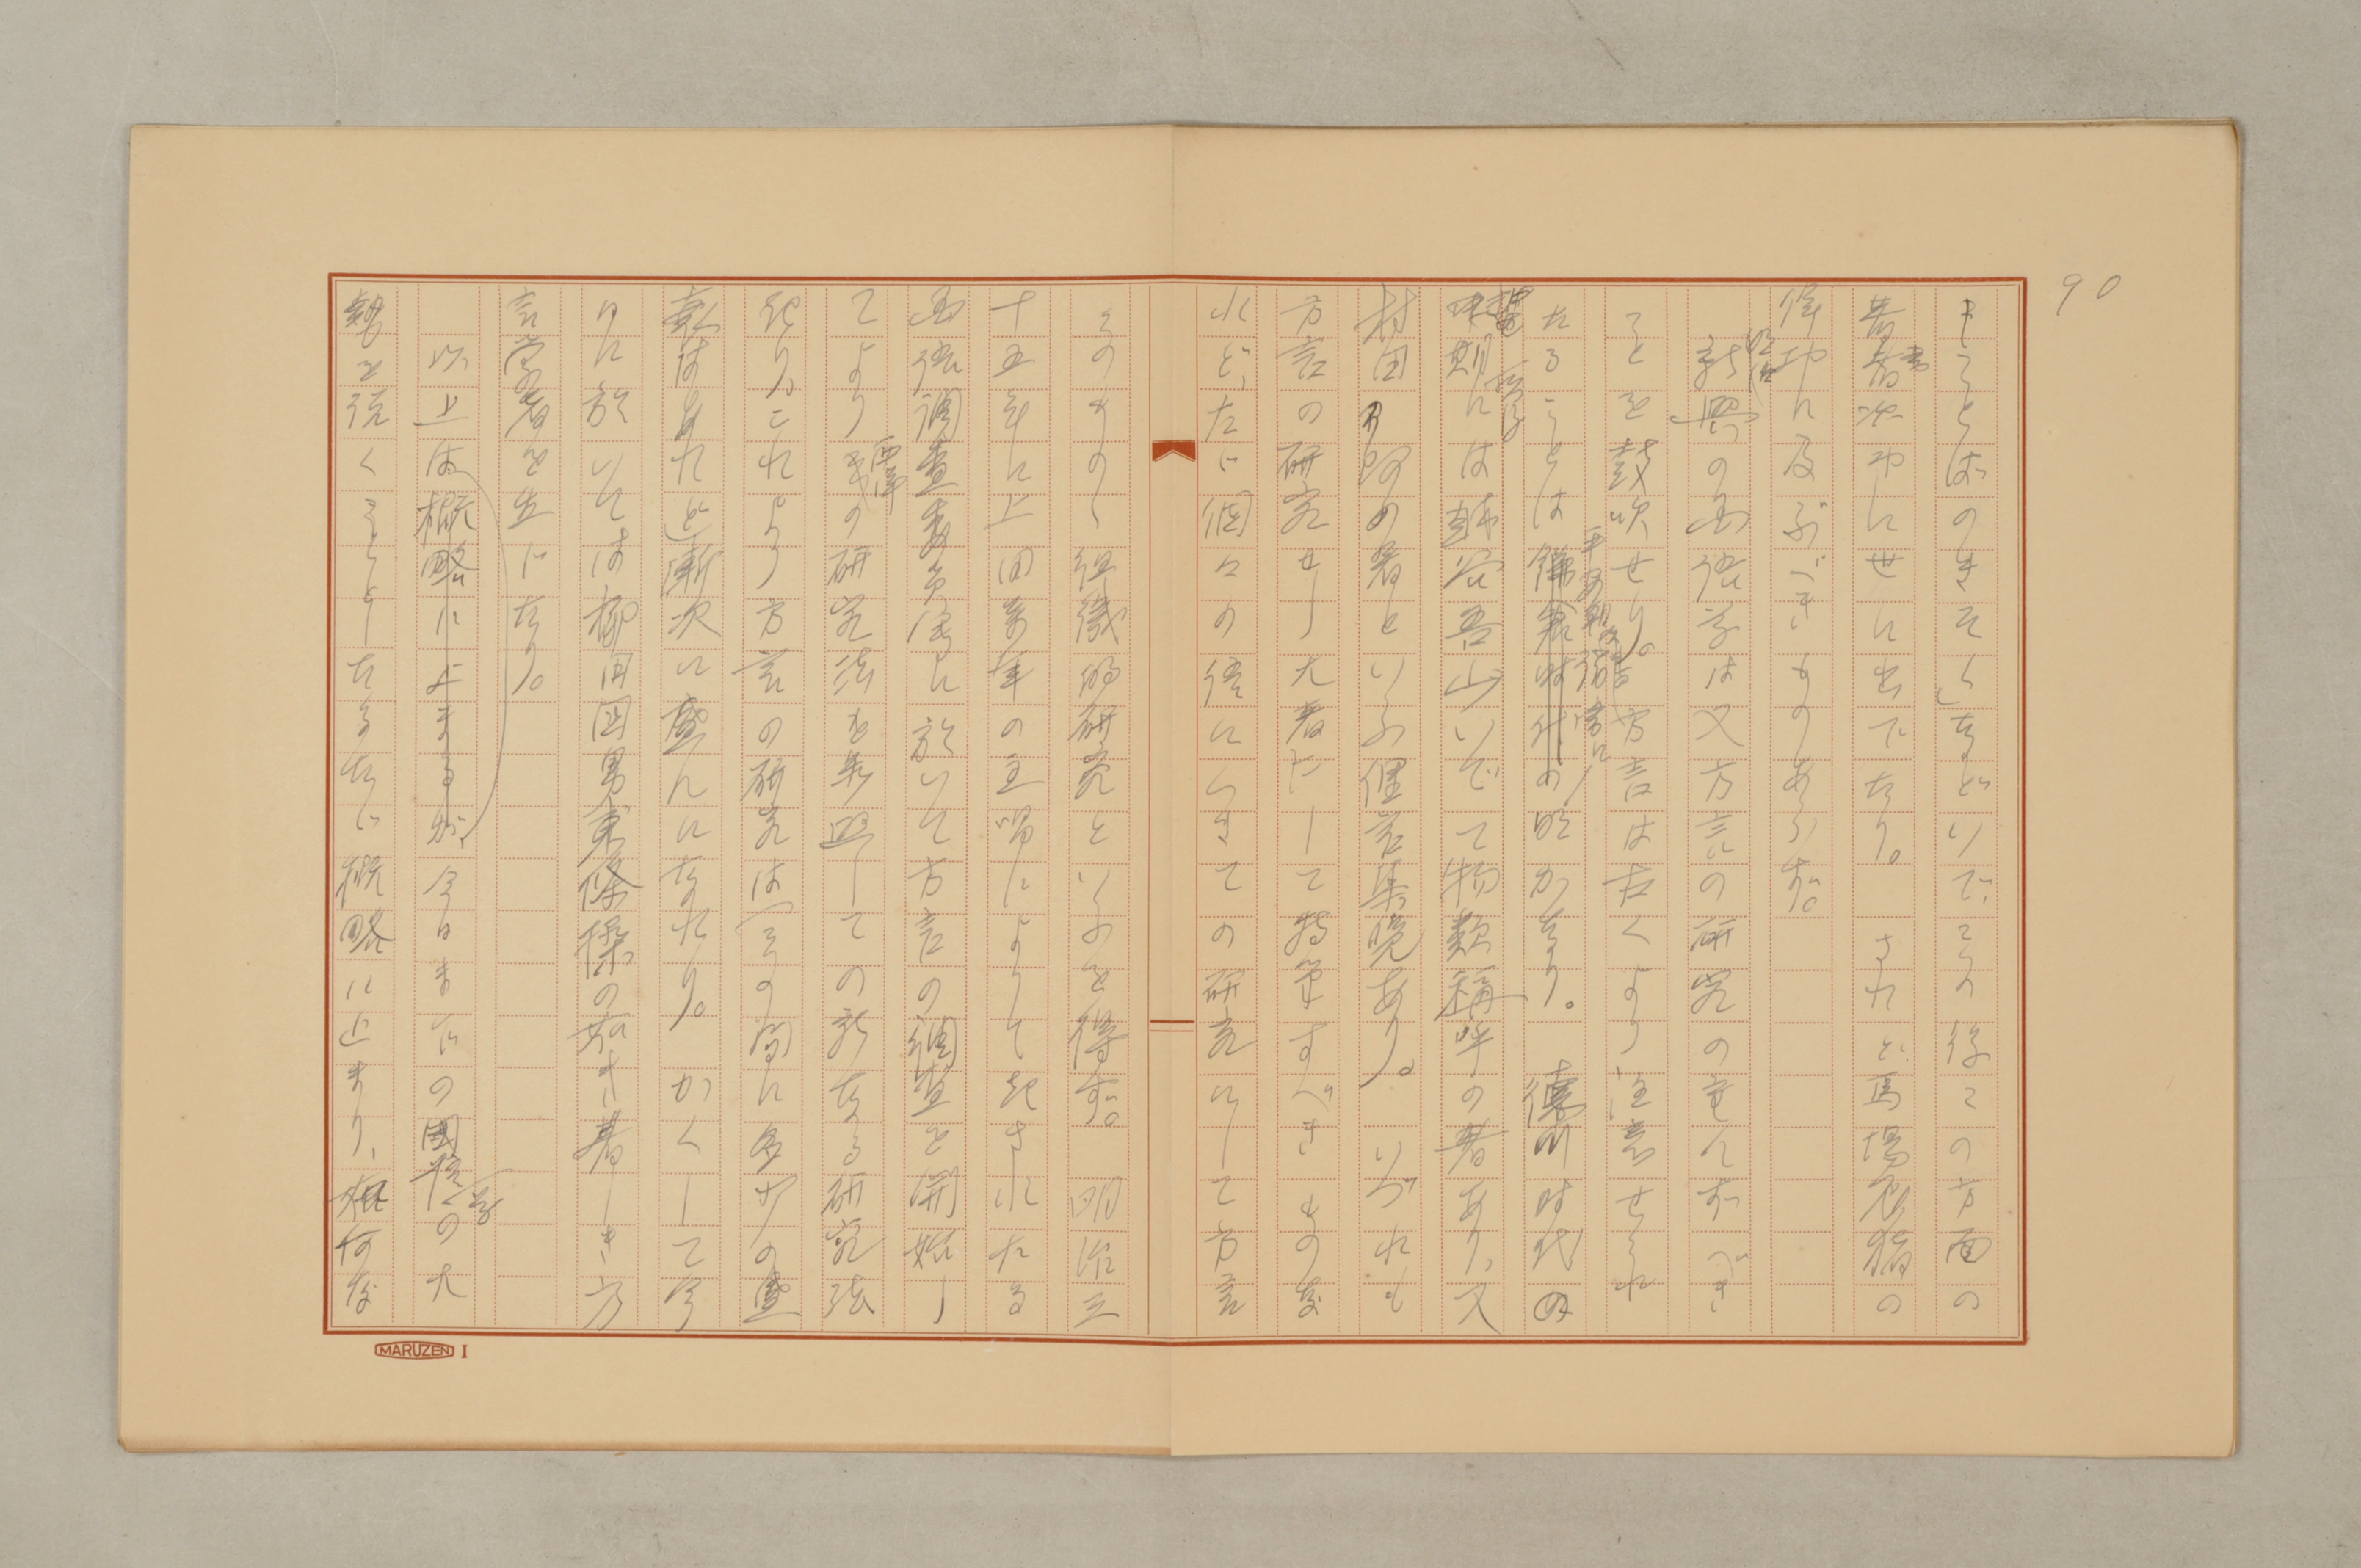 90
ことばのきそく」などいで、この後この方面の
著書次々に世に出でたり。されど馬場辰猪の
傑作に及ぶべきものあらず。
明治
新興の国語学は又方言の研究の重んずべき
ことを鼓吹せり。方言は古くより注意せられ
たることは 明かなり。徳川時代の
には越谷吾山いでて物類称呼の著あり、又
村田 の著といふ俚言集覧あり。いづれも
方言の研究せし大著にして特筆すべきものな
れど、たゞ個々の語につきての研究にして方言
そのものゝ組織的研究といふを得ず。明治三
十五年に上田萬年の主唱によりて起されたる
国語調査委員会に於いて方言の調査を開始し
てより の研究法を新興しての新なる研究法
起り。これより方言の研究は(その間に多少の盛
衰はあれど)漸次に盛んになれり。かくして今
日に於いては柳田国男東條操の如き著しき方
言学者を生じたり。
以上は概略によまるが、今日までの國語学の大
勢を説くこととしたるたゞ概略に止まり、如何な
MARUZEN I